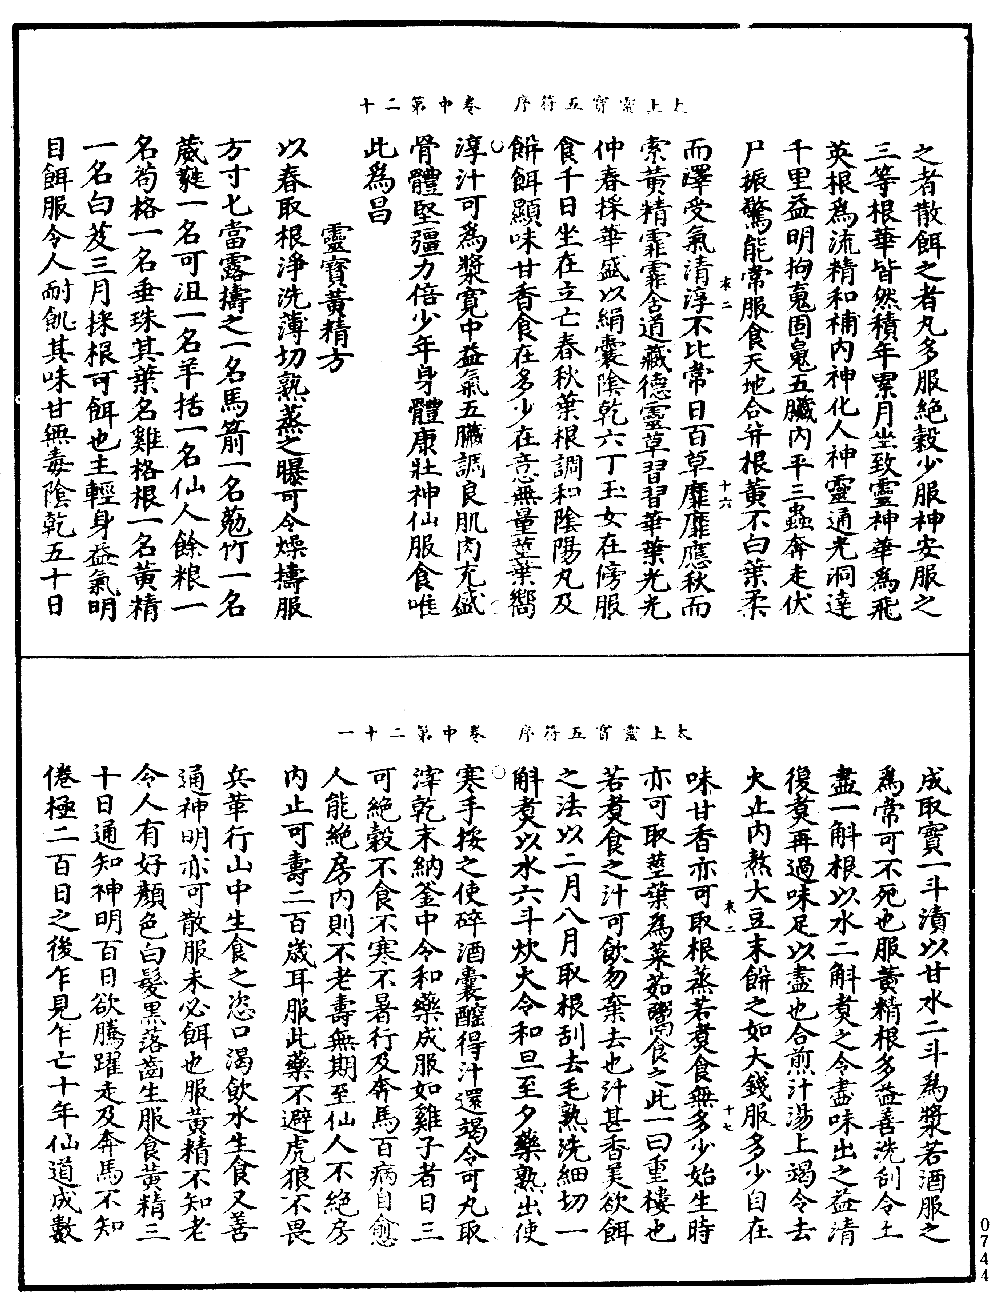 太上靈寶五符序　卷中第二十
之者散餌之者丸多服絕穀少服神安服之
三等根華皆然積年累月坐致靈神華為飛
英根為流精和補內神化人神靈通光洞達
千里益明拘䰟固魄五臟內平三蟲奔走伏
尸振驚能常服食天地合并根黃不白葉柔
而澤受氣清淳不比常日百草靡靡應秋而
索黃精霏霏含道藏德靈草習習華葉光光
仲春採華盛以絹囊陰乾六丁玉女在傍服
食千日坐在立亡春秋葉根調和陰陽丸及
餅餌顯味甘香食在多少在意無量莖葉嚮
淳汁可為漿寬中益氣五臟調良肌肉充盛
骨體堅彊力倍少年身體康壯神仙服食唯
此為昌
靈寶黃精方
以春取根淨洗薄切熟蒸之曝可令燥擣服
方寸匕當露擣之一名馬箭一名菟竹一名
葳蕤一名可沮一名羊括一名仙人餘粮一
名苟格一名垂珠其葉名雞格根一名黃精
一名白芨三月採根可餌也主輕身益氣明
目餌服令人耐飢其味甘無毒陰乾五十日
太上靈寶五符序　卷中第二十一
成取寶一斗漬以甘水二斗為漿若酒服之
為常可不死也服黃精根多益善洗刮令土
盡一斛根以水二斛煑之令盡味出之益清
復煑再過味足以盡也合煎汁湯上竭令去
火止內熬大豆末餅之如大錢服多少自在
味甘香亦可取根蒸若煑食無多少始生時
亦可取莖葉為菜茹鬻食之此一曰重樓也
若煑食之汁可飲勿棄去也汁甚香美欲餌
之法以二月八月取根刮去毛熟洗細切一
斛煑以水六斗炊火令和旦至夕藥熟出使
寒手挼之使碎酒囊醡得汁還竭令可丸取
滓乾末納釜中令和藥成服如雞子者日三
可絕穀不食不寒不暑行及奔馬百病自愈
人能絕房內則不老壽無期至仙人不絕房
內止可壽二百歲耳服此藥不避虎狼不畏
兵華行山中生食之恣口渴飲水生食又善
通神明亦可散服未必餌也服黃精不知老
令人有好顏色白髮黑落齒生服食黃精三
十日通知神明百日欲騰躍走及奔馬不知
倦極二百日之後乍見乍亡十年仙道成數
0744